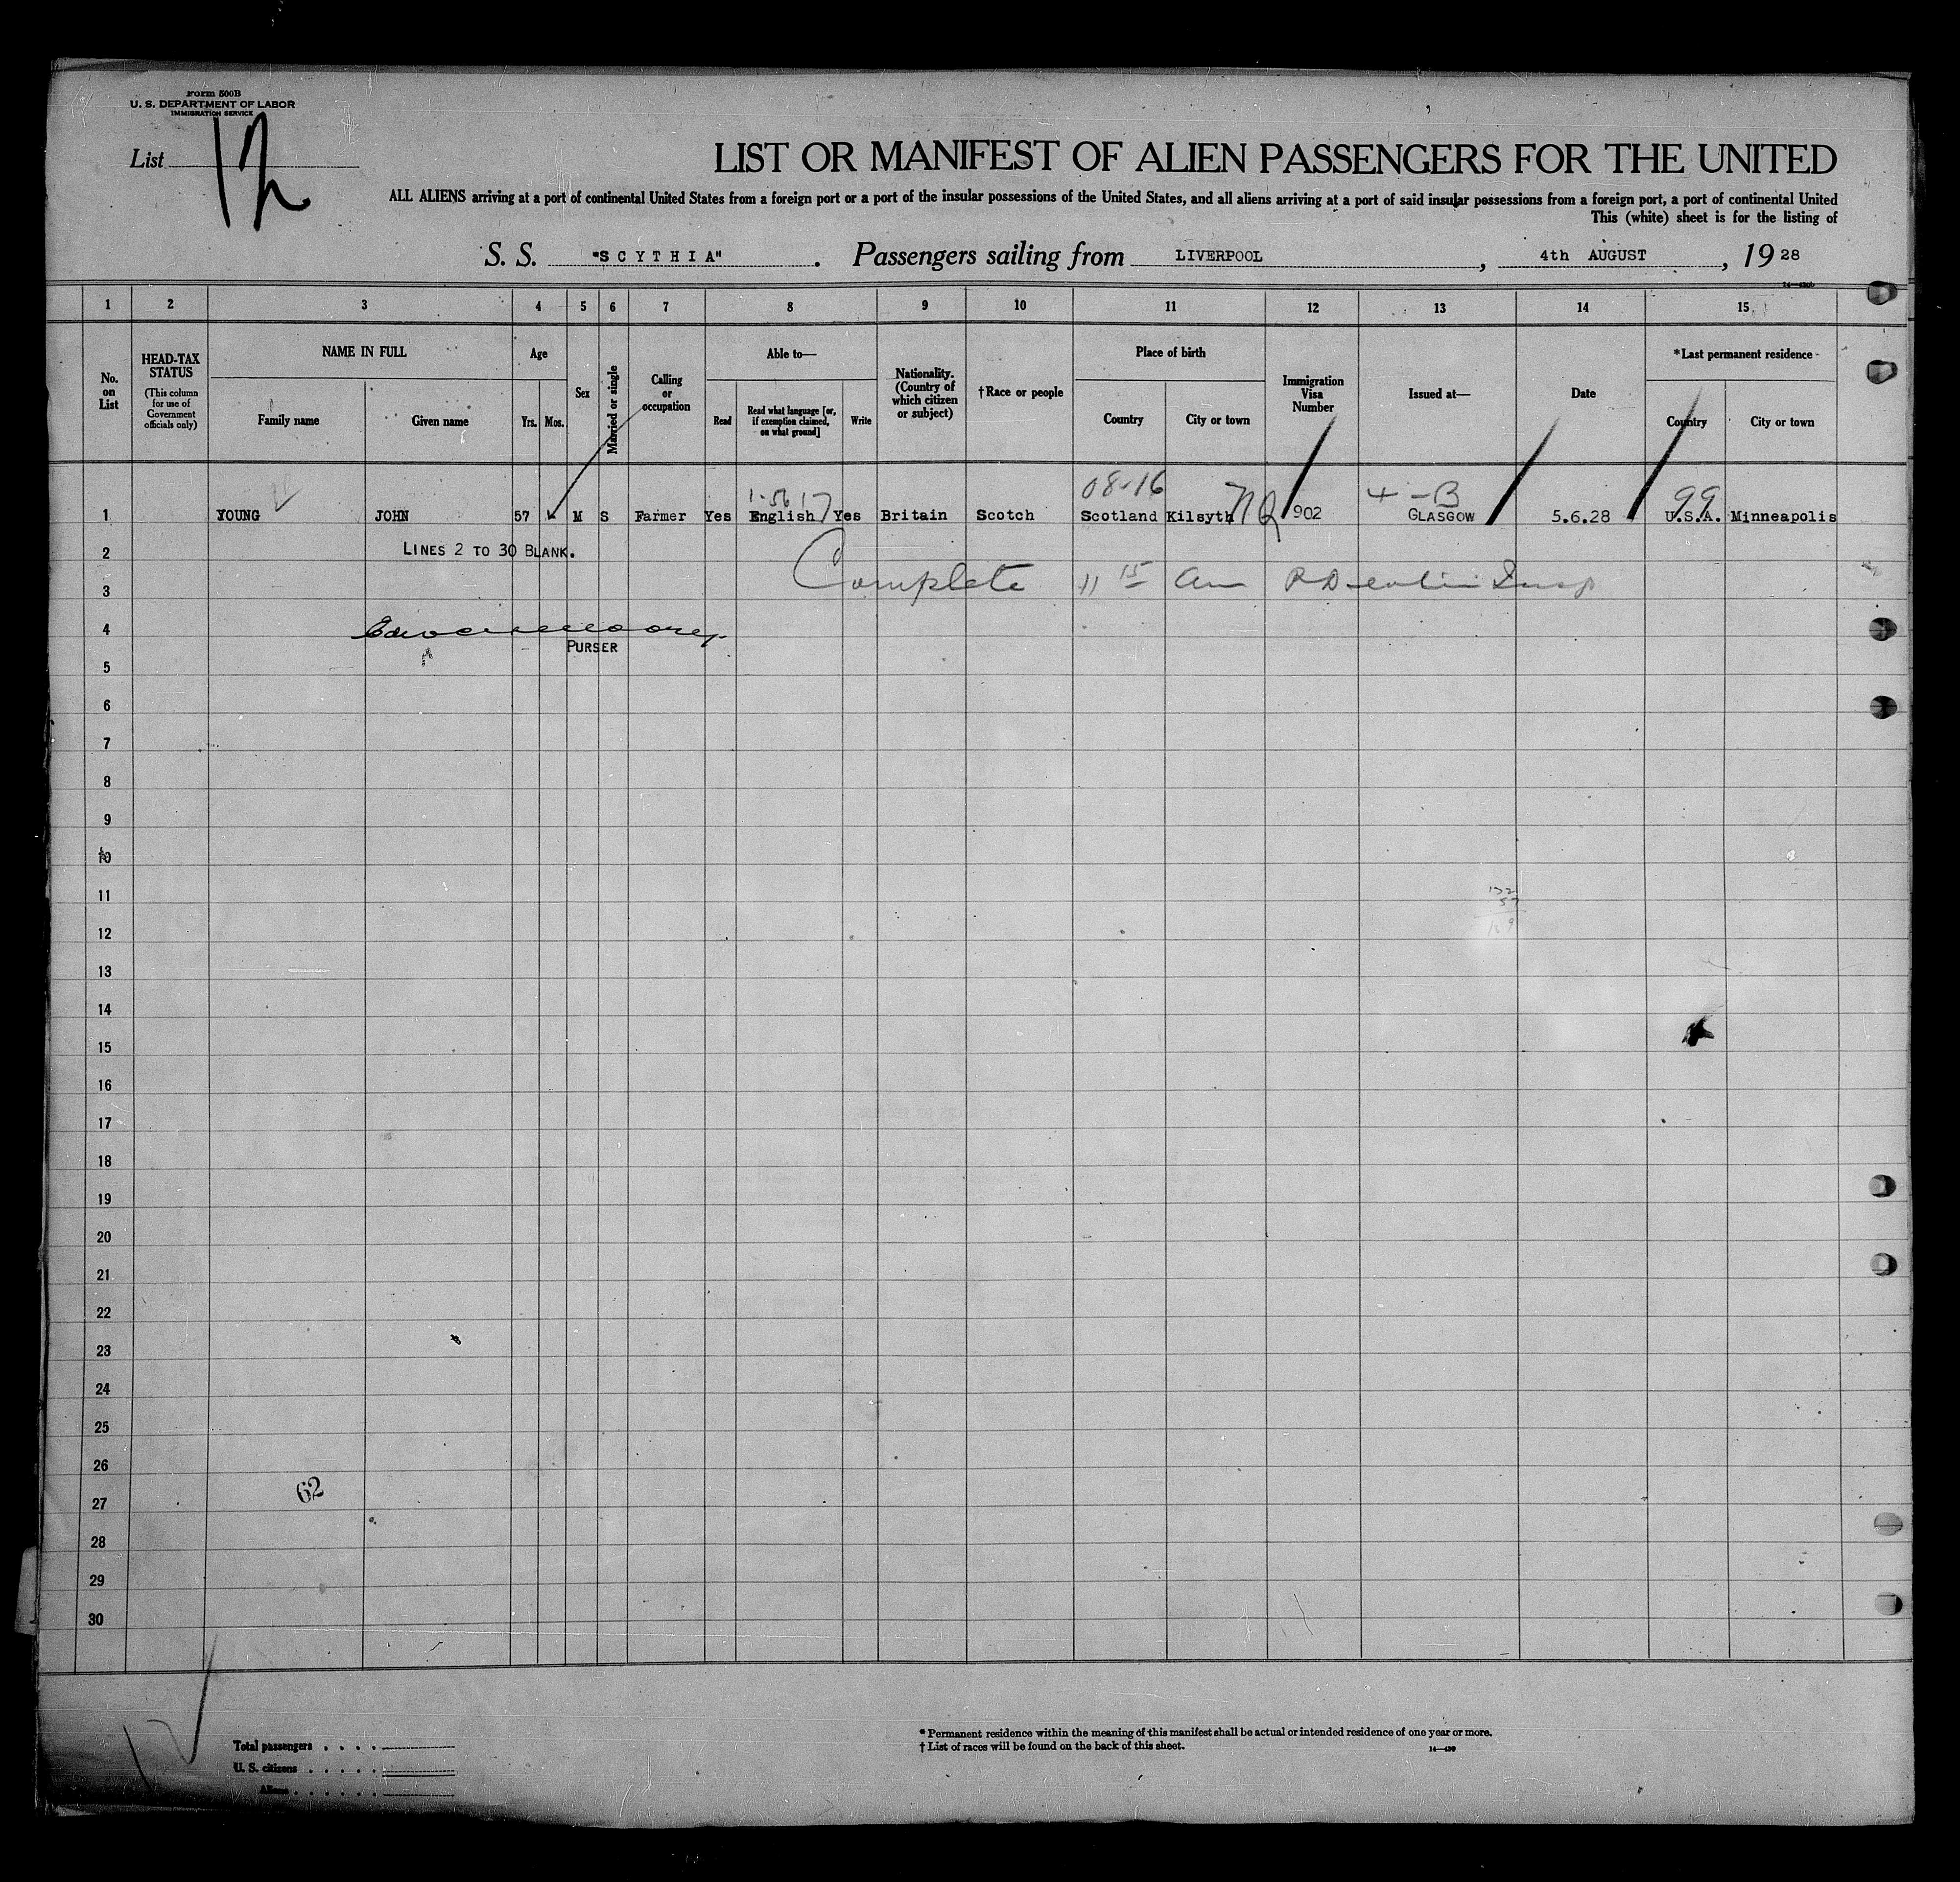 Form 500B
U. S. DEPARTMENT OF LABOR
IMMIGRATION SERVICE
List 12
LIST OR MANIFEST OF ALIEN PASSENGERS FOR THE UNITED
ALL ALIENS arriving at a port of continental United States from a foreign port or a port of the insular possessions of the United States, and all aliens arriving at a port of said insular possessions from a foreign port, a port of continental United
This (white) sheet is for the listing of
S. S. "SCYTHIA". Passengers sailing from LIVERPOOL, 4th AUGUST, 1928
1 2 3 4 5 6 7 8 9 10 11 12 13 14 15
No. on List
HEAD-TAX STATUS
(This column for use of Government officials only)
NAME IN FULL
Family name
Given name
Age
Yrs.
Mos.
Sex
Married or single
Calling or occupation
Able to—
Read
Read what language [or, if exemption claimed, on what ground]
Write
Nationality. (Country of which citizen or subject)
†Race or people
Place of birth
Country
City or town
Immigration Visa Number
Issued at—
Date
*Last permanent residence
Country
City or town
08-16
4 - B
99
1 YOUNG JOHN 57 M S Farmer Yes English Yes Britain Scotch Scotland Kilsyth 902 GLASGOW 5.6.28 U.S.A. Minneapolis
2 LINES 2 TO 30 BLANK.
3 Complete 11 15 am
4
PURSER
5
6
7
8
9
10
11
12
13
14
15
16
17
18
19
20
21
22
23
24
25
26
62
27
28
29
30
Total passengers . . . .
U. S. citizens . . . . .
Aliens . . . . . .
* Permanent residence within the meaning of this manifest shall be actual or intended residence of one year or more.
† List of races will be found on the back of this sheet.